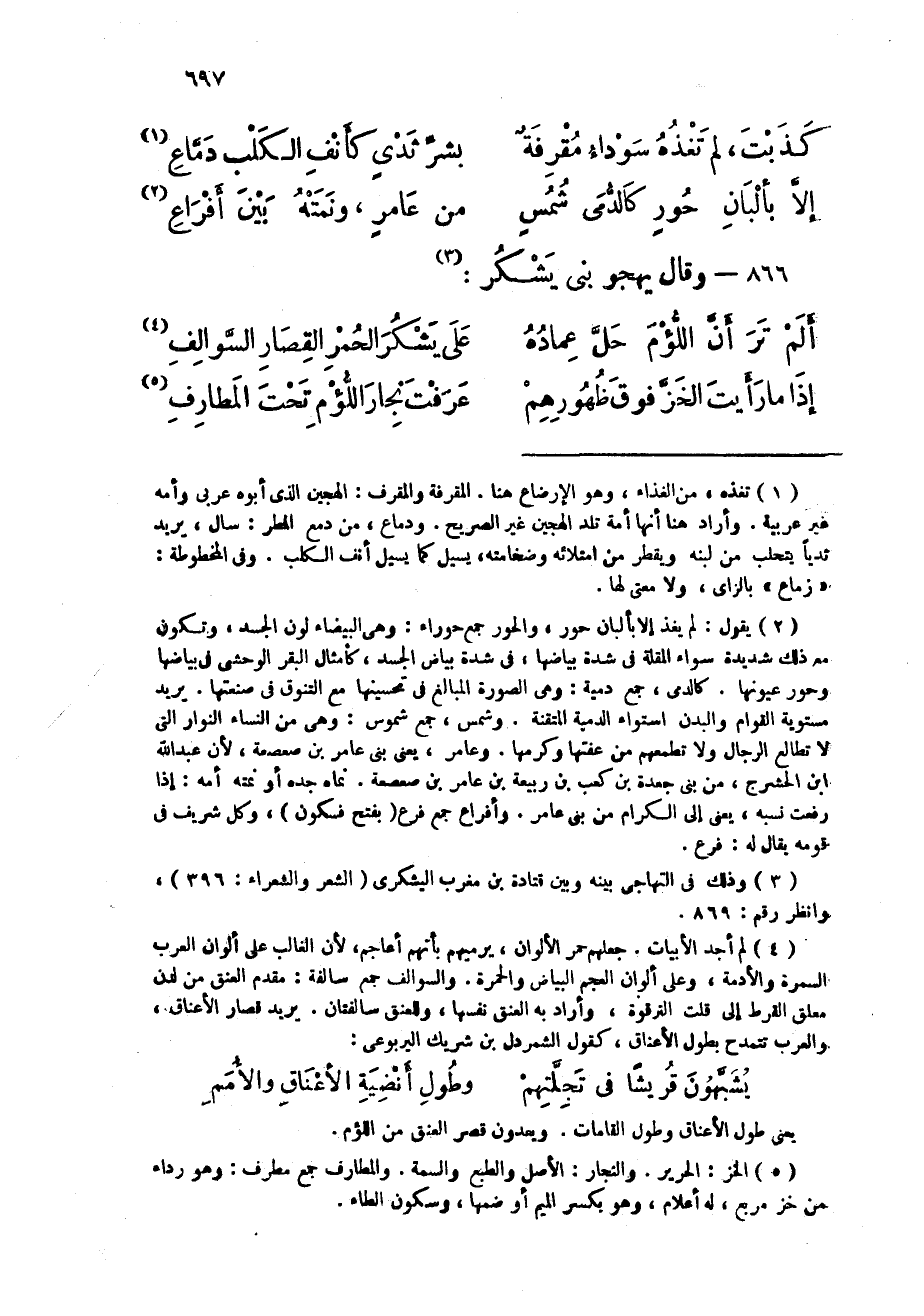 ٦٩٧
كَذَبْتَ، لم تَغْذُهُ سَوْداءُ مُقْرِفَةٌ بشرِّ ثَدْيٍ كأَنْفِ الكَلْبِ دَمَّاعِ (١)
إلاَّ بأَلْبَانِ حُورٍ كَالدُّمَى شُمُسٍ من عَامرٍ، ونَمَتْهُ بَيْنَ أَفْرَاعِ (٢)
٨٦٦ — وقال يهجو بنى يَشْكُر (٣) :
أَلَمْ تَرَ أَنَّ اللُّؤْمَ حَلَّ عِمادُهُ عَلَى يَشْكُرَ الحُمْرِ القِصَارِ السَّوالِفِ (٤)
إذَا ما رَأَيتَ الخَزَّ فوقَ ظُهُورِهِمْ عَرَفْتَ نِجارَ اللُّؤْمِ تَحْتَ المَطارِفِ (٥)
(١) تغذه ، من الغذاء ، وهو الإرضاع هنا . المقرفة والمقرف : الهجين الذى أبوه عربى وأمه
غير عربية . وأراد هنا أنها أمة تلد الهجين غير الصريح . ودماع ، من دمع المطر : سال ، يريد
ثدياً يتحلب من لبنه ويقطر من امتلائه وضخامته، يسيل كما يسيل أنف الكلب . وفى المخطوطة :
« زماع » بالزاى ، ولا معنى لها .
(٢) يقول : لم يغذ إلا بألبان حور ، والحور جمع حوراء : وهى البيضاء لون الجسد ، وتكون
مع ذلك شديدة سواء المقلة فى شدة بياضها ، فى شدة بياض الجسد ، كأمثال البقر الوحشى فى بياضها
وحور عيونها . كالدمى ، جمع دمية : وهى الصورة المبالغ فى تحسينها مع التنوق فى صنعتها . يريد
مستوية القوام والبدن استواء الدمية المتقنة . وشمس ، جمع شموس : وهى من النساء النوار التى
لا تطالع الرجال ولا تطمعهم من عفتها وكرمها . وعامر ، يعنى بنى عامر بن صعصعة ، لأن عبدالله
ابن الحشرج ، من بنى جعدة بن كعب بن ربيعة بن عامر بن صعصعة . نماه جده أو نمته أمه : إذا
رفعت نسبه ، يعنى إلى الكرام من بنى عامر . وأفراع جمع فرع ( بفتح فسكون ) ، وكل شريف فى
قومه يقال له : فرع .
(٣) وذلك فى التهاجى بينه وبين قتادة بن مغرب اليشكرى ( الشعر والشعراء : ٣٩٦ ) ،
وانظر رقم : ٨٦٩ .
(٤) لم أجد الأبيات . جعلهم حمر الألوان ، يرميهم بأنهم أعاجم، لأن الغالب على ألوان العرب
السمرة والأدمة ، وعلى ألوان العجم البياض والحمرة. والسوالف جمع سالفة : مقدم العنق من لدن
معلق القرط إلى قلت الترقوة ، وأراد به العنق نفسها ، وللعنق سالفتان . يريد قصار الأعناق ،
والعرب تتمدح بطول الأعناق ، كقول الشمردل بن شريك اليربوعى :
يُشَبَّهُونَ قُرَيشًا فى تَجِلَّتِهِمْ وطُولِ أَنْضِيَةِ الأَعْنَاقِ والأُمَمِ
يعنى طول الأعناق وطول القامات . ويعدون قصر العنق من اللؤم .
(٥) الخز : الحرير . والنجار : الأصل والطبع والسمة . والمطارف جمع مطرف : وهو رداء
من خز مربع ، له أعلام ، وهو بكسر الميم أو ضمها ، وسكون الطاء .